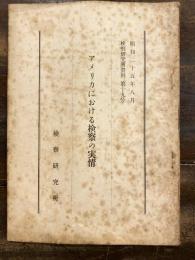 昭和二十五年八月
検察研究所資料 第十九号
アメリカにおける検察の実情
検察研究所